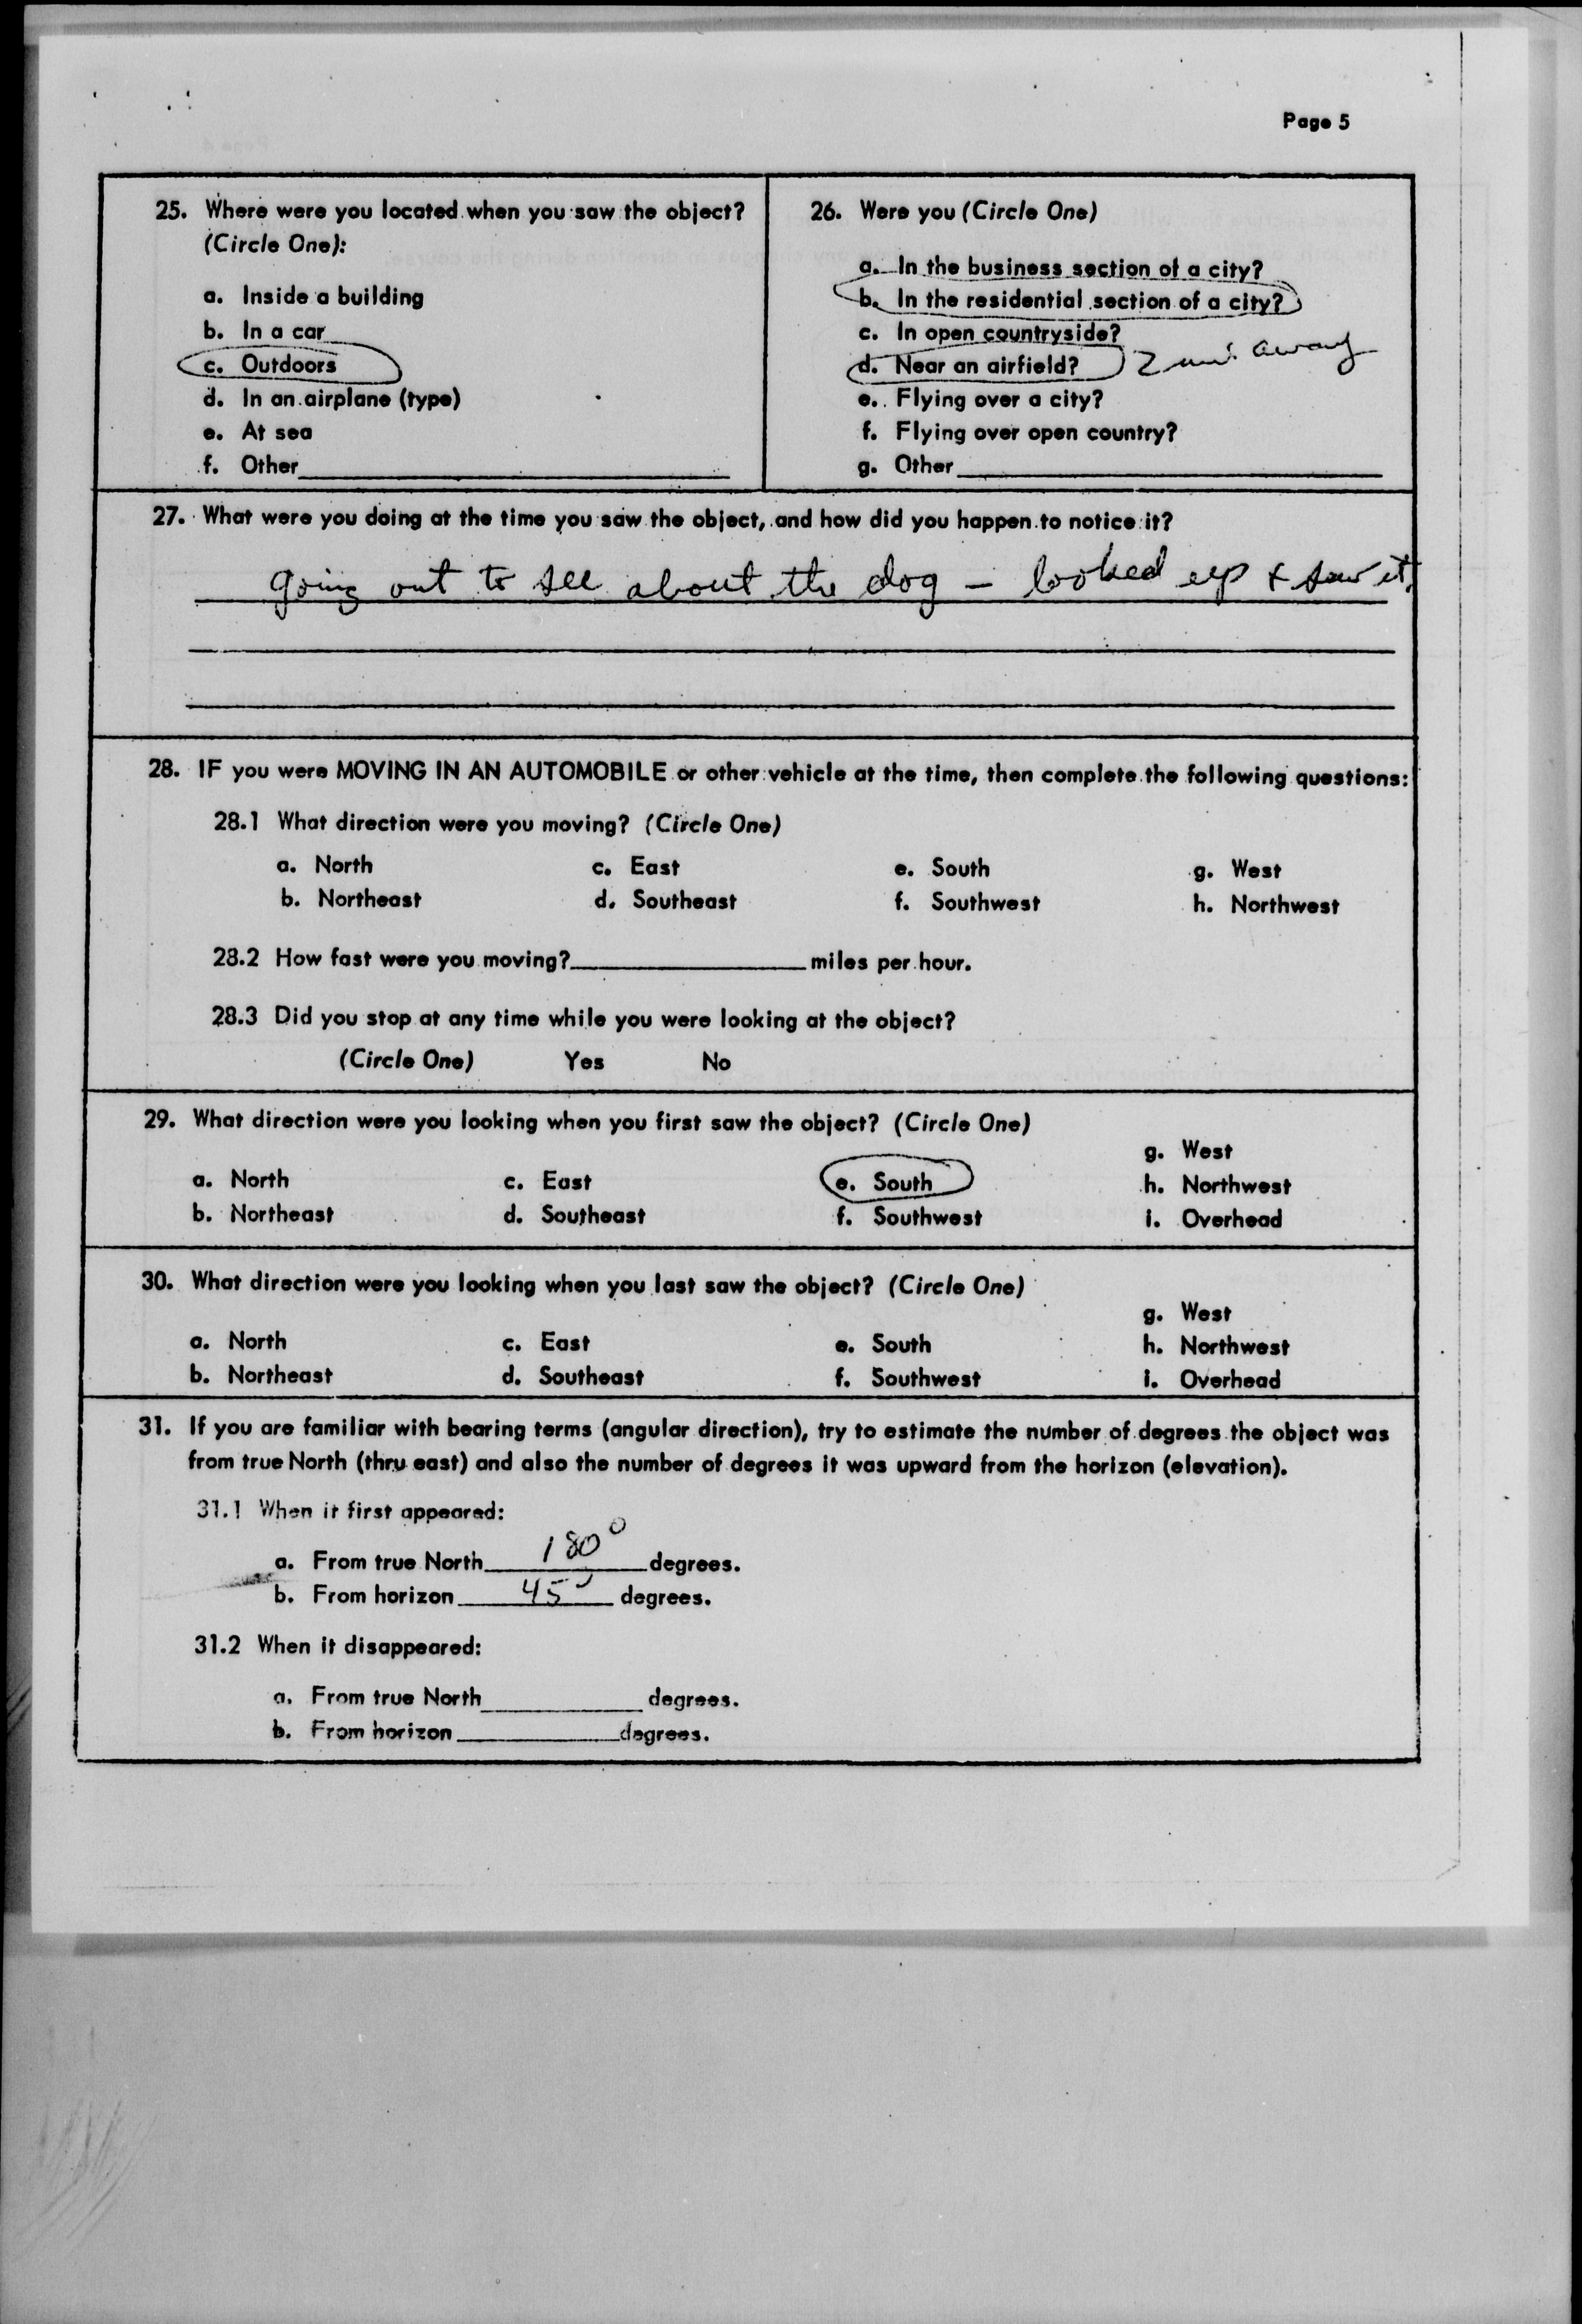 Page 5
25. Where were you located when you saw the object?
(Circle One):
a. Inside a building
b. In a car
c. Outdoors
d. In an airplane (type)
e. At sea
f. Other
26. Were you (Circle One)
a. In the business section of a city?
b. In the residential section of a city?
c. In open countryside?
d. Near an airfield? 2 mi. away
e. Flying over a city?
f. Flying over open country?
g. Other
27. What were you doing at the time you saw the object, and how did you happen to notice it?
going out to see about the dog – looked up & saw it.
28. IF you were MOVING IN AN AUTOMOBILE or other vehicle at the time, then complete the following questions:
28.1 What direction were you moving? (Circle One)
a. North c. East e. South g. West
b. Northeast d. Southeast f. Southwest h. Northwest
28.2 How fast were you moving? miles per hour.
28.3 Did you stop at any time while you were looking at the object?
(Circle One) Yes No
29. What direction were you looking when you first saw the object? (Circle One)
g. West
a. North c. East e. South h. Northwest
b. Northeast d. Southeast f. Southwest i. Overhead
30. What direction were you looking when you last saw the object? (Circle One)
g. West
a. North c. East e. South h. Northwest
b. Northeast d. Southeast f. Southwest i. Overhead
31. If you are familiar with bearing terms (angular direction), try to estimate the number of degrees the object was
from true North (thru east) and also the number of degrees it was upward from the horizon (elevation).
31.1 When it first appeared:
a. From true North 180° degrees.
b. From horizon 45° degrees.
31.2 When it disappeared:
a. From true North degrees.
b. From horizon degrees.